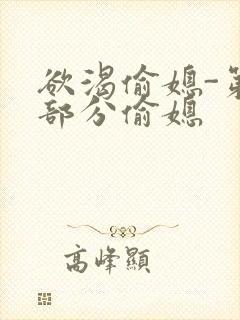 欲渴偷媳-第
部分偷媳
高峰顯